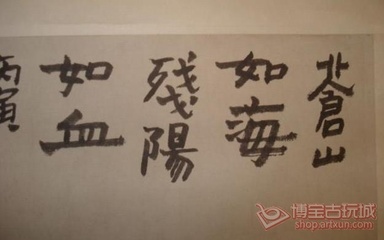 蒼山
如海
殘陽
如血
丙寅
博宝古玩城
shop.artxun.com